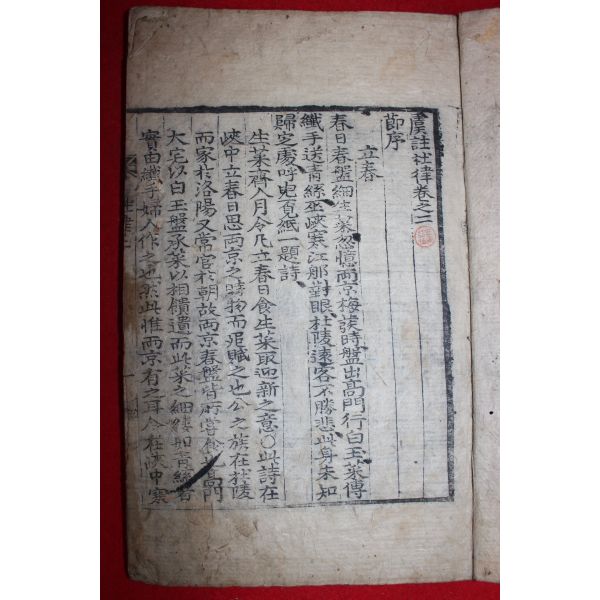 虞註杜律卷之二
節序
立春
春日春盤細生菜忽憶兩京梅發時盤出高門行白玉菜傳
纖手送青絲巫峽寒江那對眼杜陵遠客不勝悲此身未知
歸定處呼兒覓紙一題詩
生菜齊人月令凡立春日食生菜取迎新之意○此詩在
峽中立春日思兩京之時物而 賦之也公之族在杜陵
而家於洛陽又常官於朝故兩京春盤皆所 高門
大宅以白玉盤承菜以相饋遺而此菜之細縷如青絲者
實由纖手婦人作之也然此惟兩京有之耳今在峽中寒